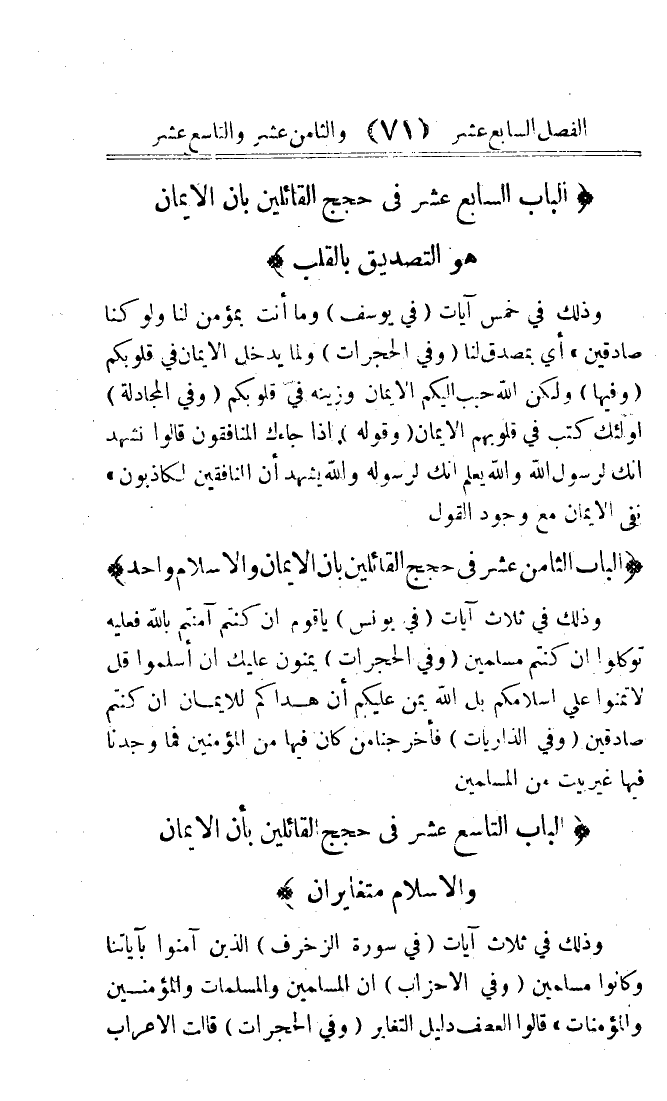 الفصل السابع عشر (٧١) والثامن عشر والتاسع عشر
﴿ الباب السابع عشر فى حجج القائلين بان الايمان
هو التصديق بالقلب ﴾
وذلك في خمس آيات ( في يوسف ) وما أنت بمؤمن لنا ولو كنا
صادقين » أي بمصدق لنا ( وفي الحجرات ) ولما يدخل الايمان في قلوبكم
( وفيها ) ولكن الله حبب اليكم الايمان وزينه في قلوبكم ( وفي المجادلة )
اولئك كتب في قلوبهم الايمان ( وقوله ) اذا جاءك المنافقون قالوا نشهد
انك لرسول الله والله يعلم انك لرسوله والله يشهد أن المنافقين لكاذبون »
نفى الايمان مع وجود القول
﴿ الباب الثامن عشر فى حجج القائلين بان الايمان والاسلام واحد ﴾
وذلك في ثلاث آيات ( في يونس ) ياقوم ان كنتم آمنتم بالله فعليه
توكلوا ان كنتم مسلمين ( وفي الحجرات ) يمنون عليك ان أسلموا قل
لاتمنوا علي اسلامكم بل الله يمن عليكم أن هداكم للايمان ان كنتم
صادقين ( وفي الذاريات ) فأخرجنا من كان فيها من المؤمنين فما وجدنا
فيها غير بيت من المسلمين
﴿ الباب التاسع عشر فى حجج القائلين بأن الايمان
والاسلام متغايران ﴾
وذلك في ثلاث آيات ( في سورة الزخرف ) الذين آمنوا بآياتنا
وكانوا مسلمين ( وفي الاحزاب ) ان المسلمين والمسلمات والمؤمنين
والمؤمنات » قالوا العطف دليل التغاير ( وفي الحجرات ) قالت الاعراب